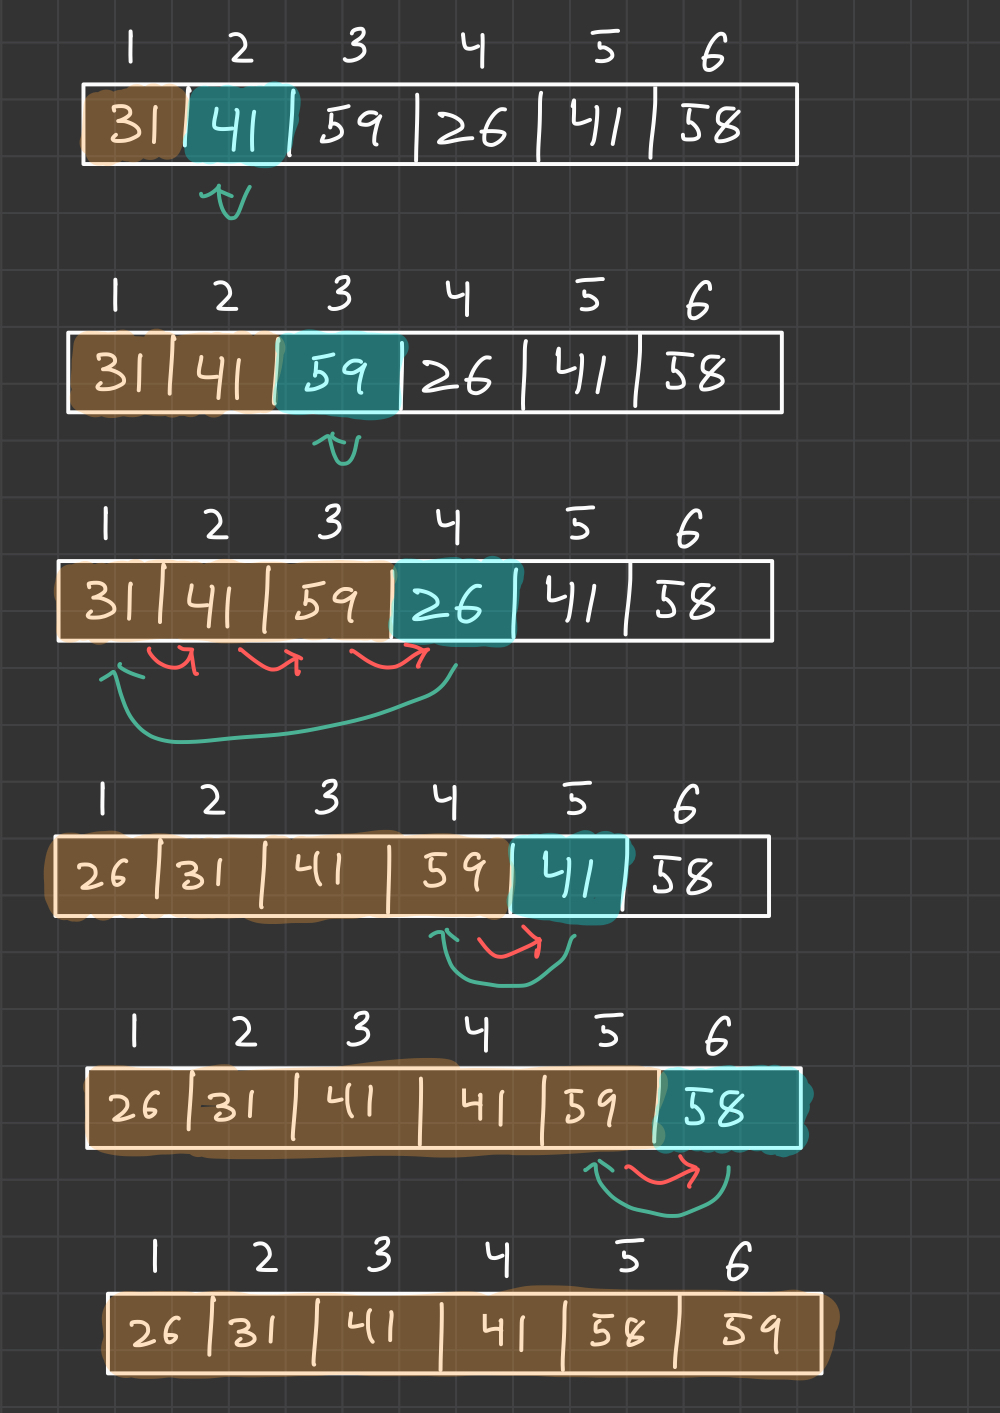 1 2 3 4 5 6
31 41 59 26 41 58
1 2 3 4 5 6
31 41 59 26 41 58
1 2 3 4 5 6
31 41 59 26 41 58
1 2 3 4 5 6
26 31 41 59 41 58
1 2 3 4 5 6
26 31 41 41 59 58
1 2 3 4 5 6
26 31 41 41 58 59